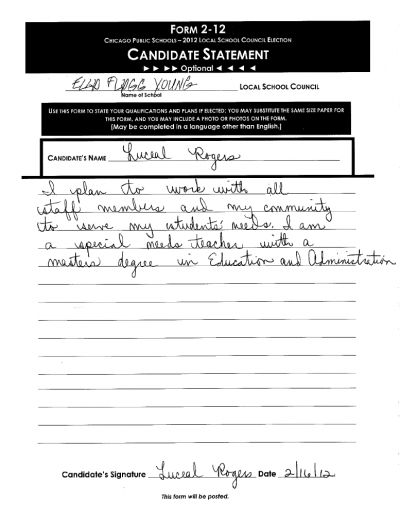 FORM 2-12
CHICAGO PUBLIC SCHOOLS – 2012 LOCAL SCHOOL COUNCIL ELECTION
CANDIDATE STATEMENT
► ► ► ► Optional ◄ ◄ ◄ ◄
ELLA FLAGG YOUNG LOCAL SCHOOL COUNCIL
Name of School
USE THIS FORM TO STATE YOUR QUALIFICATIONS AND PLANS IF ELECTED; YOU MAY SUBSTITUTE THE SAME SIZE PAPER FOR
THIS FORM, AND YOU MAY INCLUDE A PHOTO OR PHOTOS ON THE FORM.
(May be completed in a language other than English.)
CANDIDATE'S NAME Luceal Rogers
I plan to work with all
staff members and my community
to serve my students needs. I am
a special needs teacher with a
masters degree in Education and Administration
Candidate's Signature Luceal Rogers Date 2/16/12
This form will be posted.